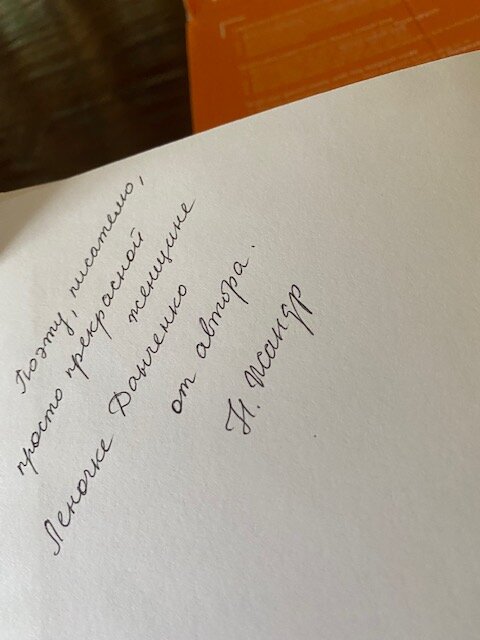 Поэту, писателю,
просто прекрасной
женщине
Леночке Данченко
от автора.
Н. Жандр